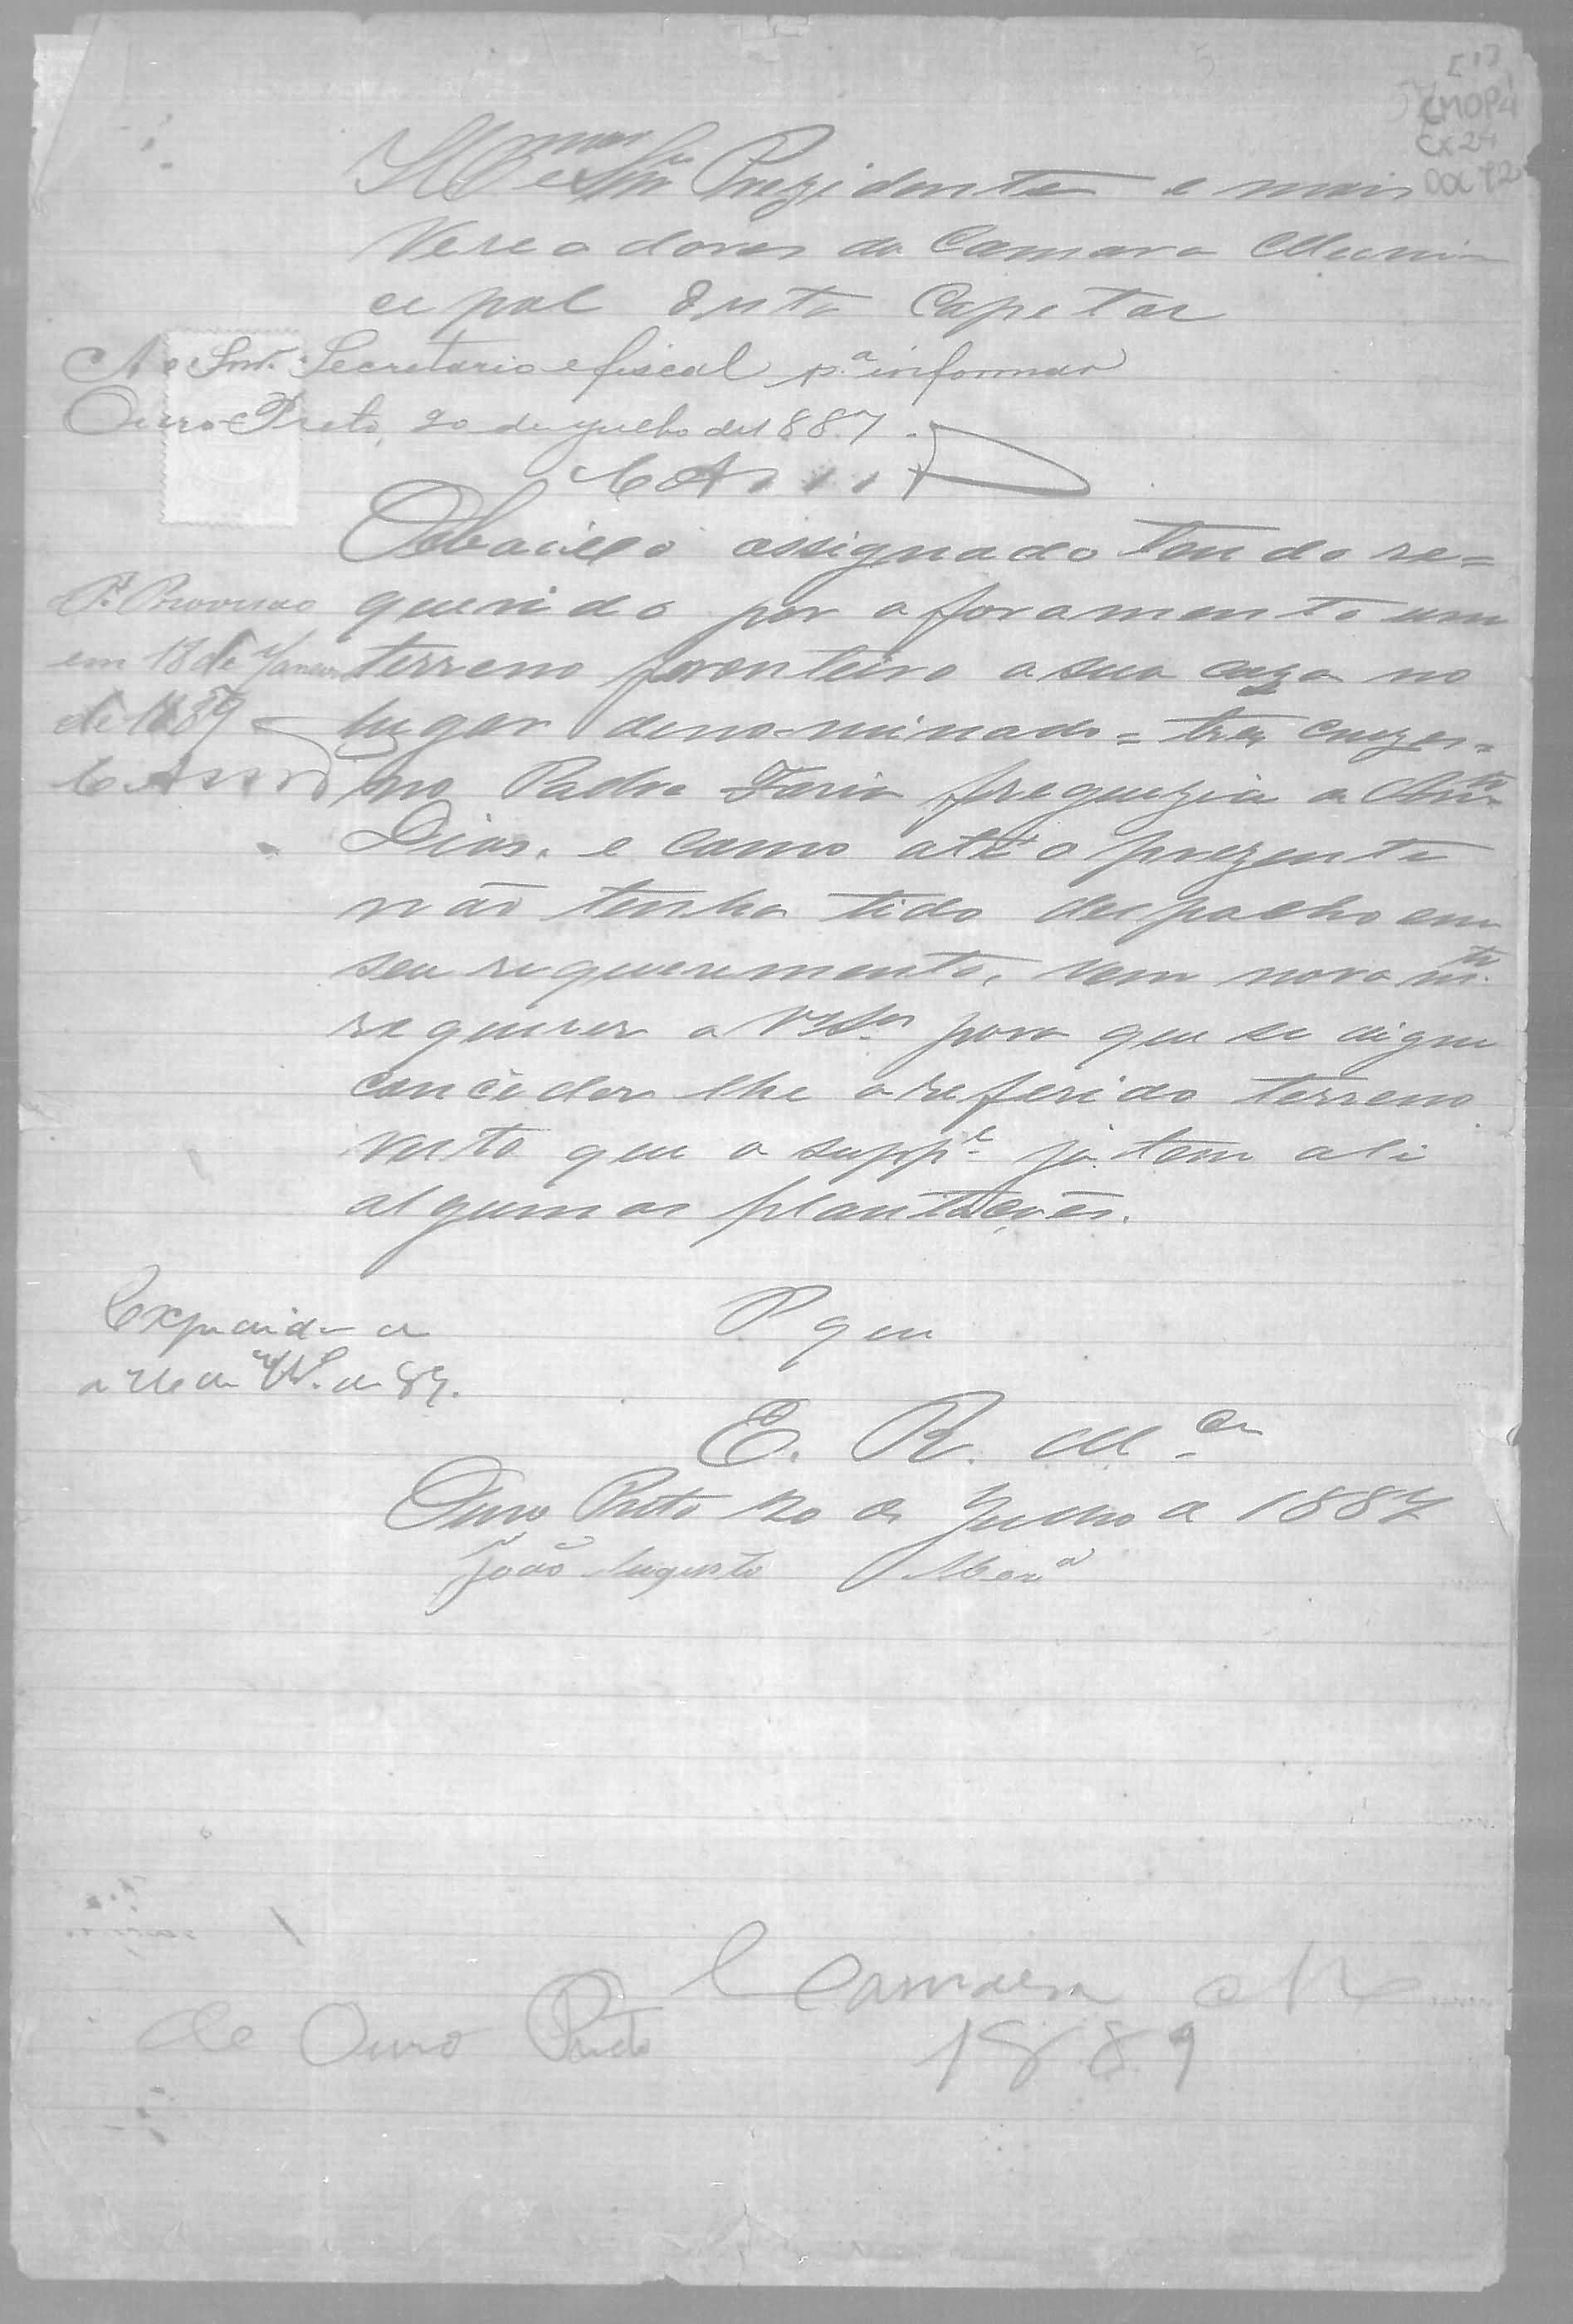 [1]
CMOP
Cx 24
DOC 72
Illmos Snr Prezidente e mais
Vereadores da Camara Muni-
cepal desta Capetal
Ao Snr. Secretario e fiscal pa informar
Ouro Preto, 20 de Julho de 1887.
O abaicho assignado tendo re=
querido por aforamento um
terreno fronteiro a sua caza no
lugar denominado = tres cruzes =
no Padre Faria freguezia de Antº
Dias, e como até o prezente
não tenha tido despacho em
seu requeremento, vem novamte
requerer a VSas para que se digne
conceder lhe o referido terreno
visto que o suppe já tem ali
algumas plantações.
Pr. Provisão
em 18 de Janeiro
de 1889
Expedida a
P que
E. R. Mce
Ouro Preto 20 de Julho de 1887
João Augusto
Camara M
de Ouro Preto 1889